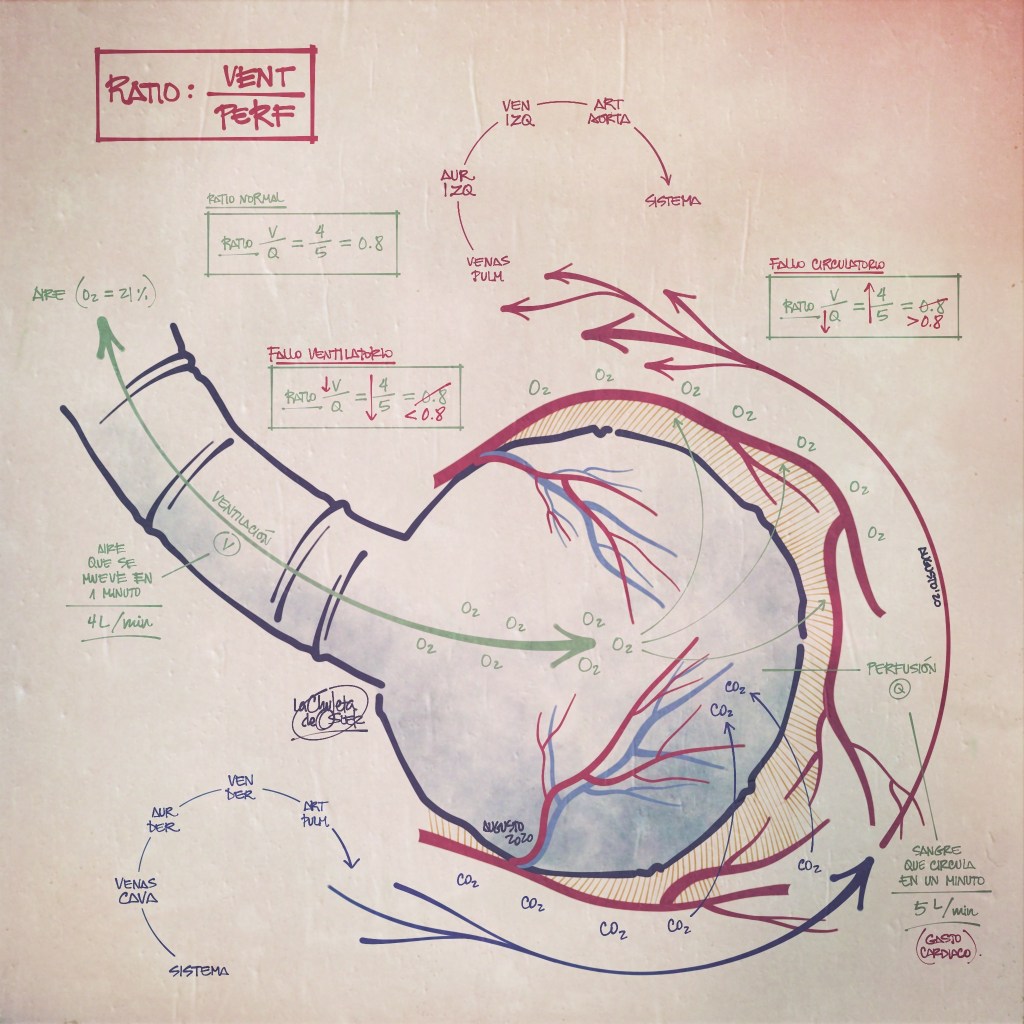 RATIO: VENT
PERF
VEN IZQ
ART AORTA
AUR IZQ
SISTEMA
VENAS PULM
RATIO NORMAL
RATIO V/Q = 4/5 = 0.8
AIRE (O2 = 21%)
FALLO CIRCULATORIO
RATIO V/↓Q = ↑4/5 = 0.8
>0.8
FALLO VENTILATORIO
RATIO ↓V/Q = ↓4/5 = 0.8
<0.8
O2
O2
O2
O2
O2
O2
O2
VENTILACIÓN
V
AIRE
QUE SE
MUEVE EN
1 MINUTO
4L/min
O2
O2
O2
O2
O2
O2
O2
AUGUSTO'20
PERFUSIÓN
Q
CO2
CO2
La Chuleta
de Osler
VEN DER
AUR DER
ART PULM
VENAS CAVA
SISTEMA
AUGUSTO
2020
CO2
CO2
CO2
CO2
CO2
SANGRE
QUE CIRCULA
EN UN MINUTO
5 L/min
(GASTO
CARDIACO)